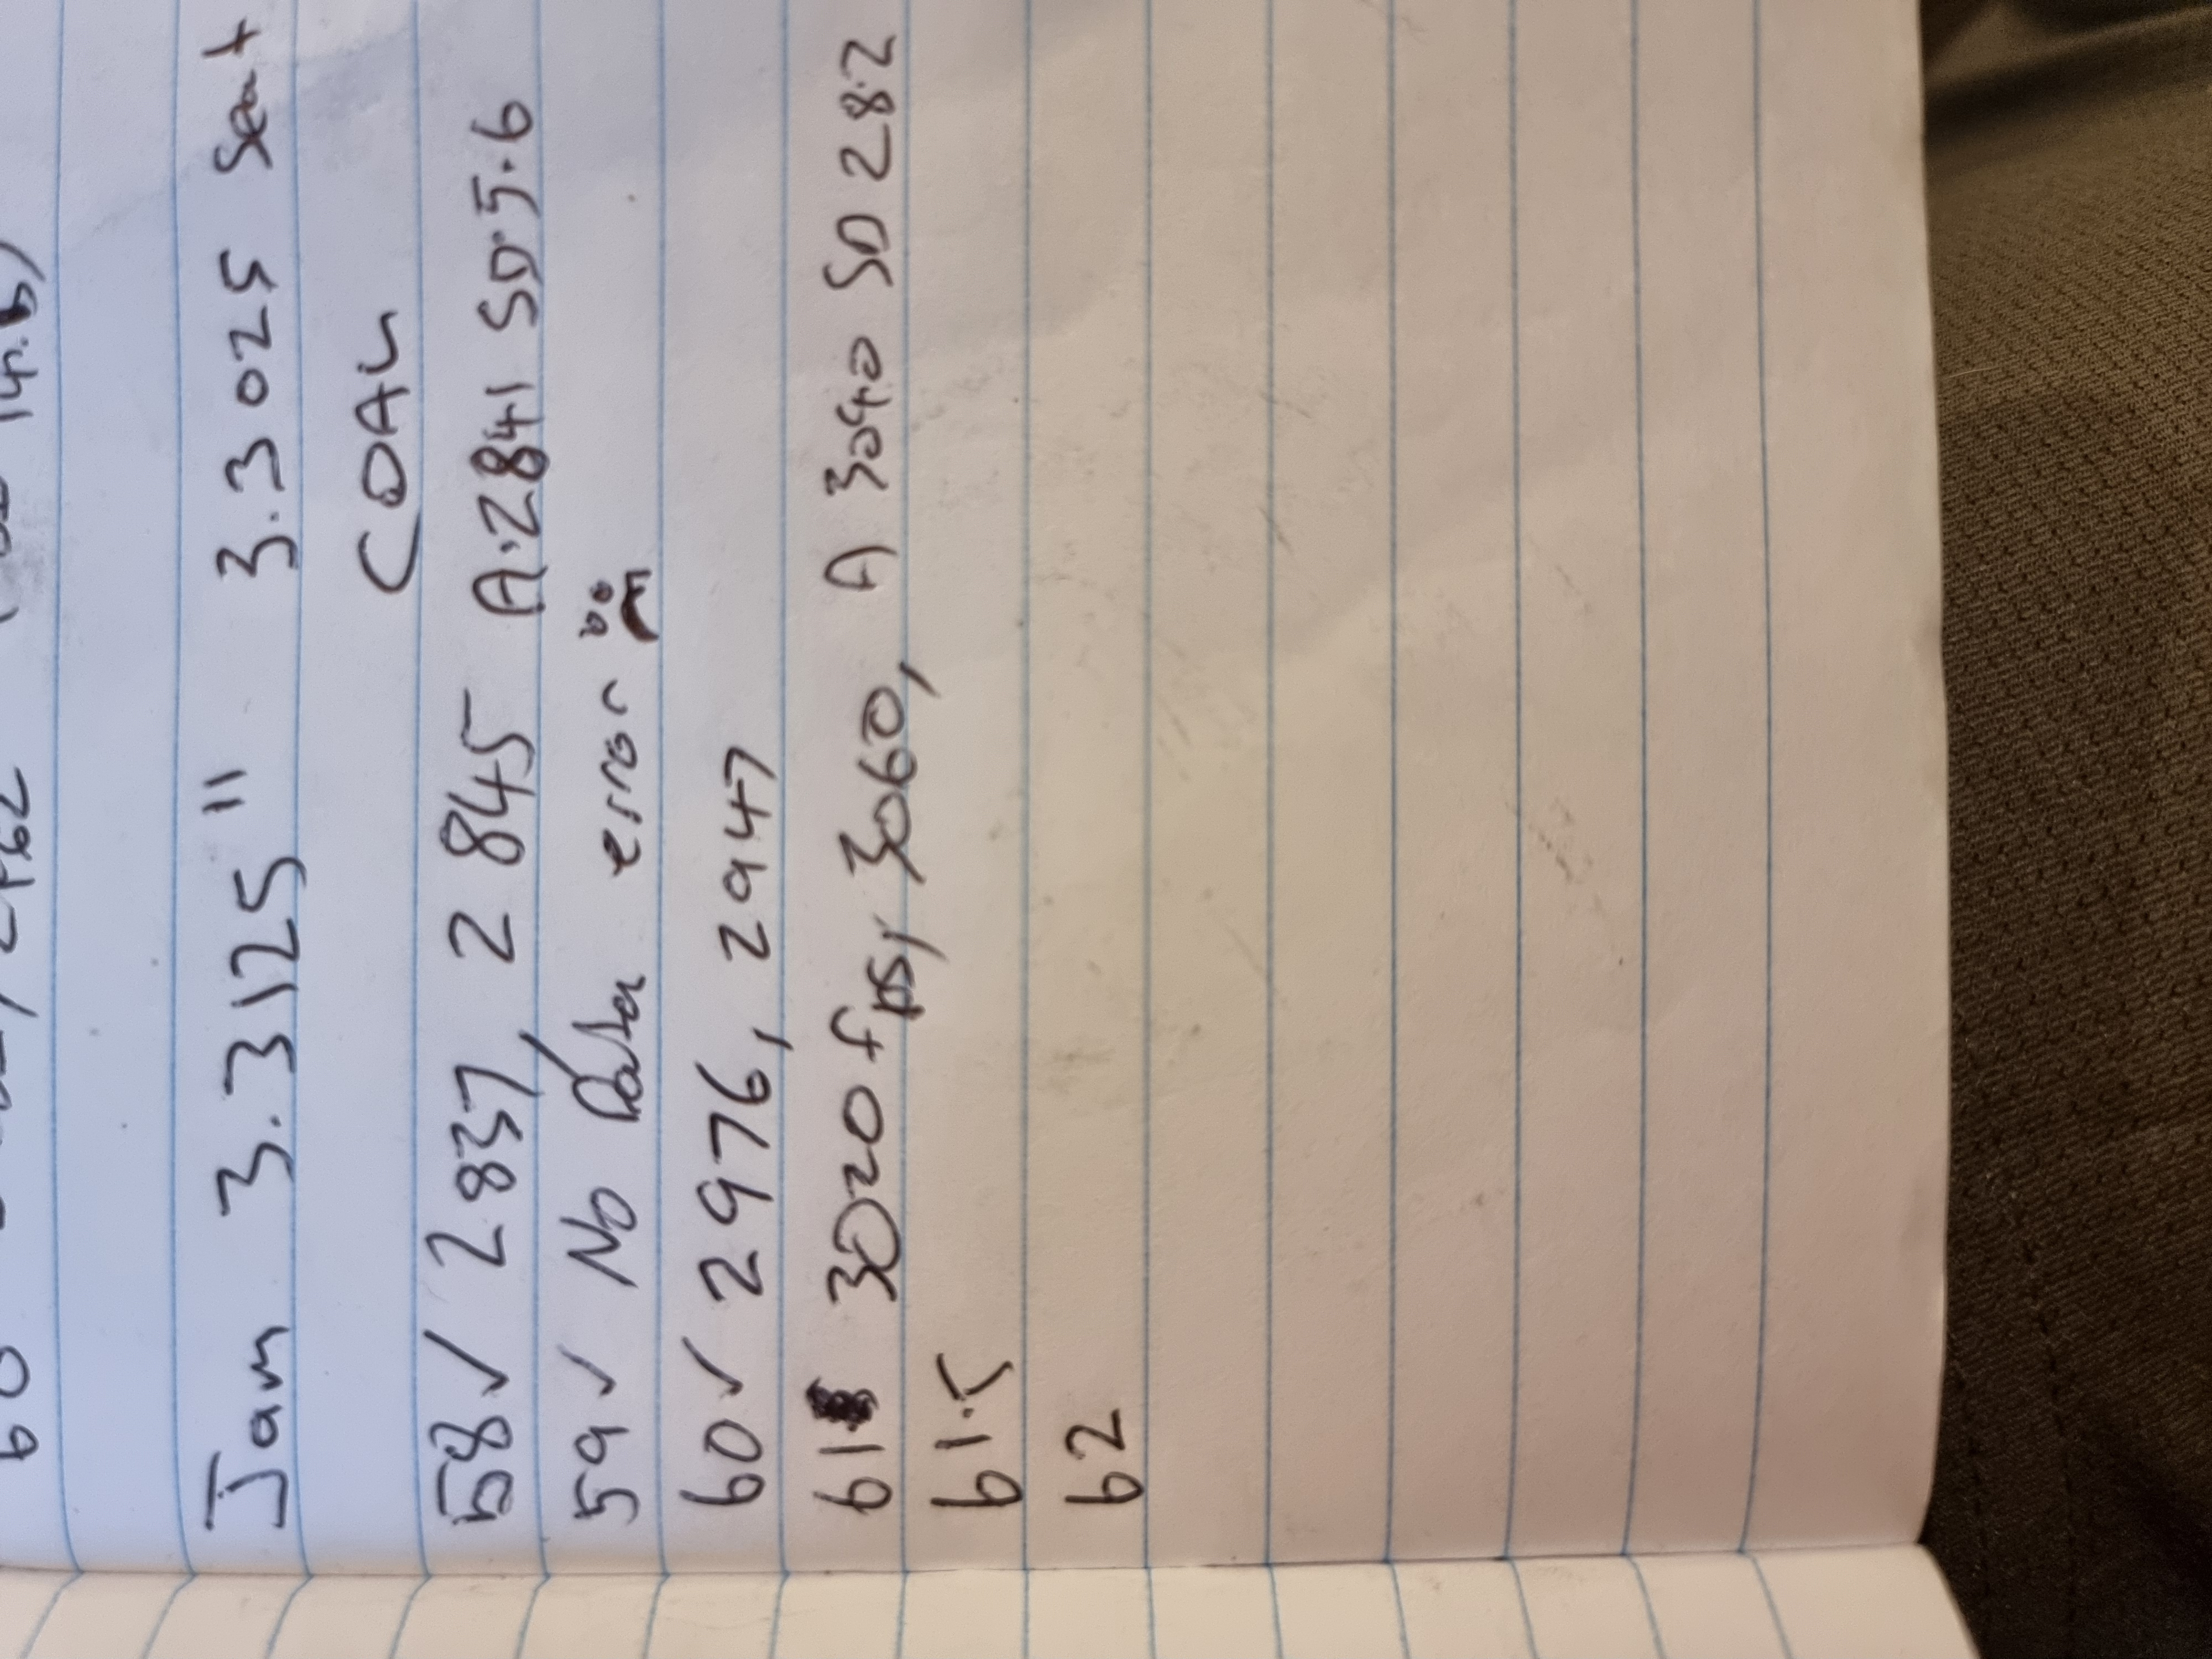 Jam 3.3125" 3.3025 Seat
COAL
58✓ 2837, 2845 A.2841 SD.5.6
59✓ No Data error
60✓ 2976, 2947
61 3020 fps, 3060, A 3040 SD 28.2
61.5
62